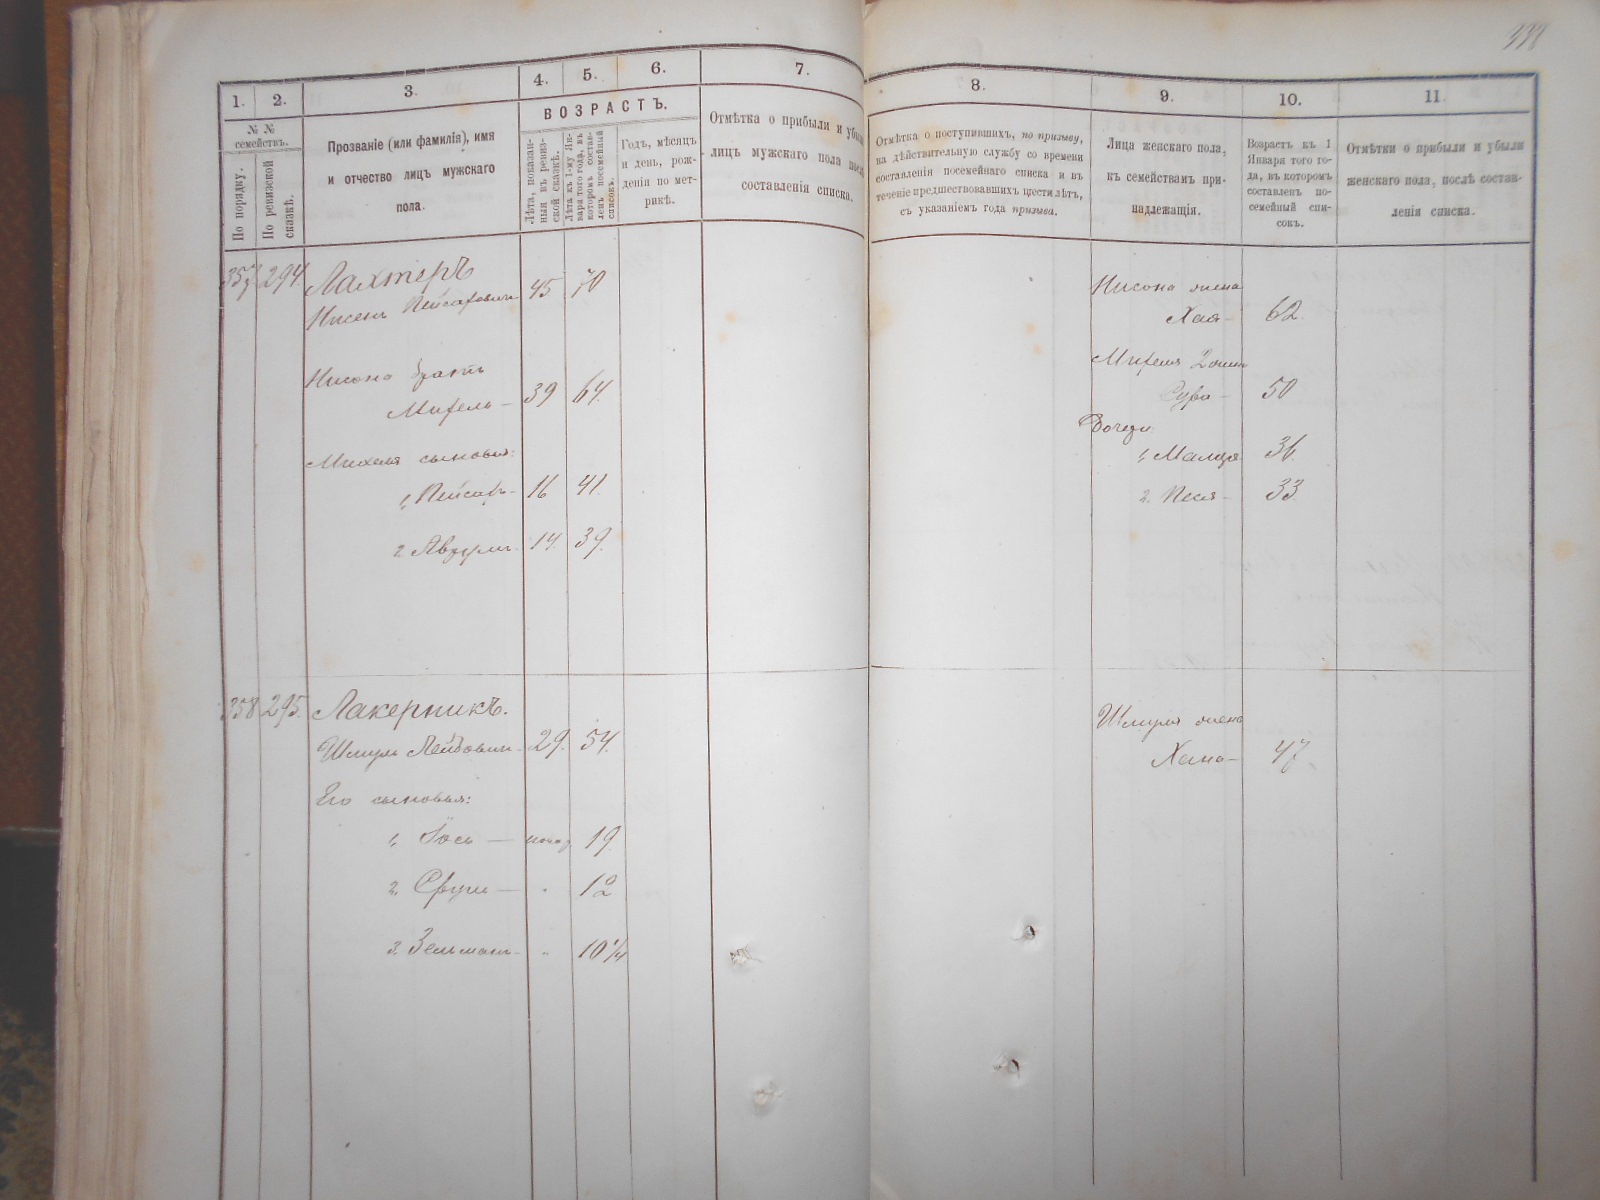 338
1. 2. 3. 4. 5. 6. 7. 8. 9. 10. 11.
№ № семействъ.
По порядку.
По ревизской сказкѣ.
Прозваніе (или фамилія), имя
и отчество лицъ мужскаго
пола.
ВОЗРАСТЪ.
Лѣта, показан-
ныя въ ревиз-
ской сказкѣ.
Лѣта къ 1-му Ян-
варя того года, въ
которомъ состав-
ленъ посемейный
списокъ.
Годъ, мѣсяцъ
и день, рож-
денія по мет-
рикѣ.
Отмѣтка о прибыли и убыли
лицъ мужскаго пола послѣ
составленія списка.
Отмѣтка о поступившихъ, по призыву,
на дѣйствительную службу со времени
составленія посемейнаго списка и въ
теченіе предшествовавшихъ шести лѣтъ,
съ указаніемъ года призыва.
Лица женскаго пола,
къ семействамъ при-
надлежащія.
Возрастъ къ 1
Января того го-
да, въ которомъ
составленъ по-
семейный спи-
сокъ.
Отмѣтки о прибыли и убыли
женскаго пола, послѣ состав-
ленія списка.
357 294. Лахтеръ
Нисенъ Пейсахович 45 70
Нисона жена
Хая 62
Нисона братъ
Михель 39 64
Михеля 2 жена
Сура 50
Михеля сыновья:
Дочери
1, Малця 36
1, Пейсахъ 16 41
2. Песя 33
2 14 39
358 295. Лакерникъ.
Шмуль Лейбович 29. 54.
Шмуля жена
Хана 47
Его сыновья:
1, Іось 19
2, Сруль 12
3. Зельманъ 10 1/4